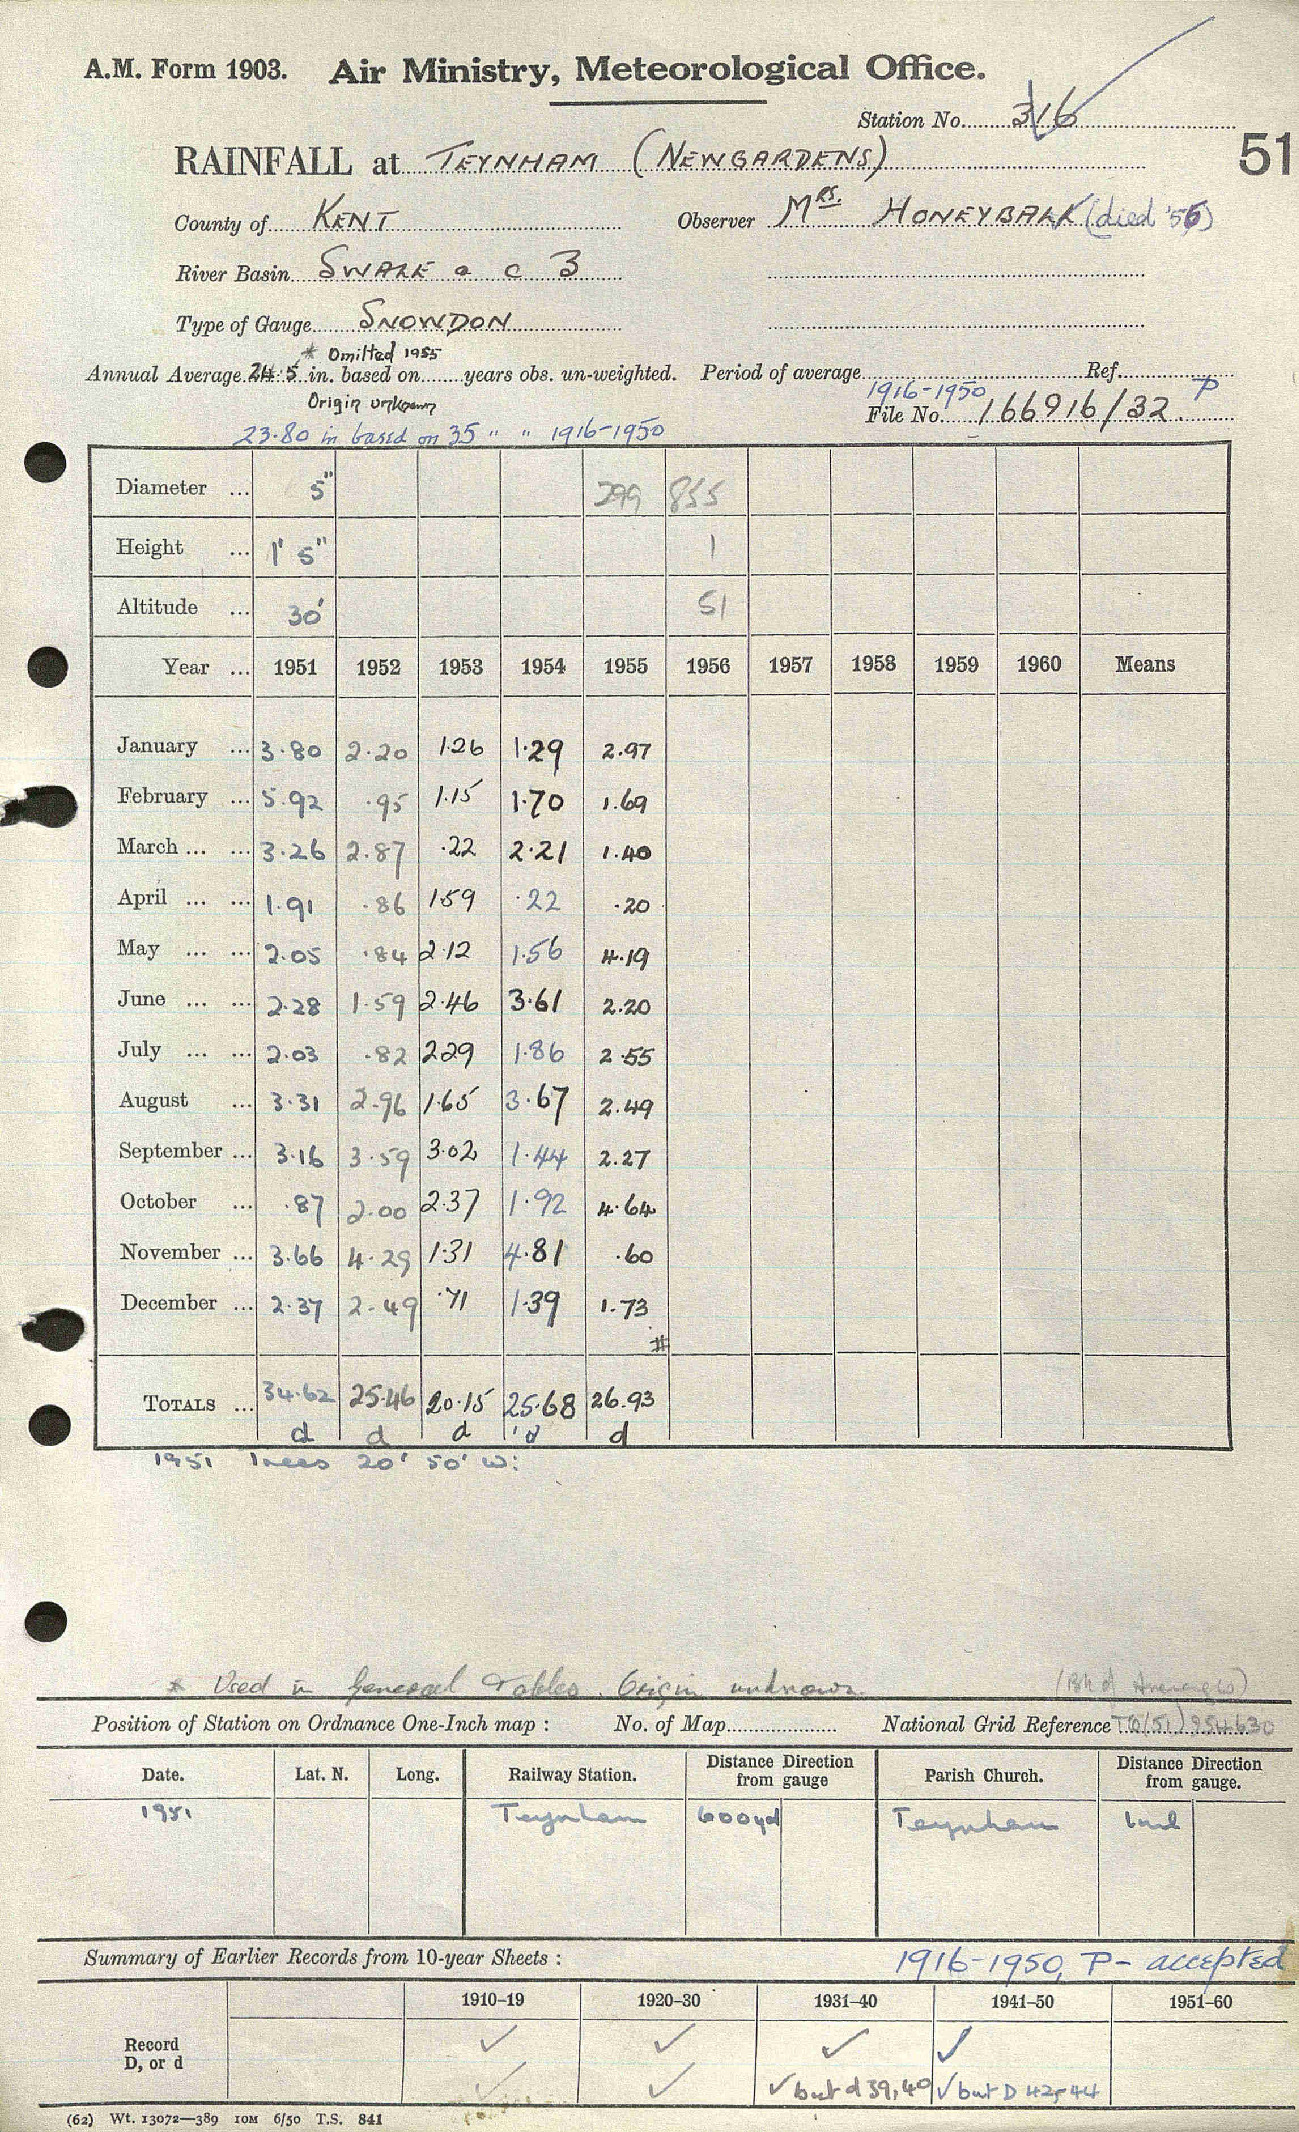 A.M. Form 1903. Air Ministry, Meteorological Office.
Station No. 316
51
RAINFALL at TEYNHAM (NEWGARDENS)
County of KENT Observer MRS. HONEYBALL (died '56)
River Basin SWALE a c 3
Type of Gauge SNOWDON
* Omitted 1955
Annual Average 24.5 in. based on years obs. un-weighted. Period of average Ref.
1916-1950 P
Origin unknown File No. 166916/32
23.80 in based on 35 " " 1916-1950
Diameter ... 5" 299 855
Height ... 1' 5" 1
Altitude ... 30' 51
Year ... 1951 1952 1953 1954 1955 1956 1957 1958 1959 1960 Means
January ... 3.80 2.20 1.26 1.29 2.97
February ... 5.92 .95 1.15 1.70 1.69
March ... ... 3.26 2.87 .22 2.21 1.40
April ... ... 1.91 .86 1.59 .22 .20
May ... ... 2.05 .84 2.12 1.56 4.19
June ... ... 2.28 1.59 2.46 3.61 2.20
July ... ... 2.03 .82 2.29 1.86 2.55
August ... 3.31 2.96 1.65 3.67 2.49
September ... 3.16 3.59 3.02 1.44 2.27
October ... .87 2.00 2.37 1.92 4.64
November ... 3.66 4.29 1.31 4.81 .60
December ... 2.37 2.49 .71 1.39 1.73
#
TOTALS ... 34.62 25.46 20.15 25.68 26.93
d d d d d
1951 Trees 20' 50' W:
* Used in General Tables. Origin unknown (Bk of Averages)
Position of Station on Ordnance One-Inch map : No. of Map National Grid Reference TQ(51)954630
Date. Lat. N. Long. Railway Station. Distance Direction from gauge Parish Church. Distance Direction from gauge.
1951 Teynham 600yd Teynham 1ml
Summary of Earlier Records from 10-year Sheets : 1916-1950, P- accepted
1910–19 1920–30 1931–40 1941–50 1951–60
Record ✓ ✓ ✓ ✓
D, or d ✓ ✓ ✓ but d 39, 40 ✓ but D 42, 44
(62) Wt. 13072—389 10M 6/50 T.S. 841